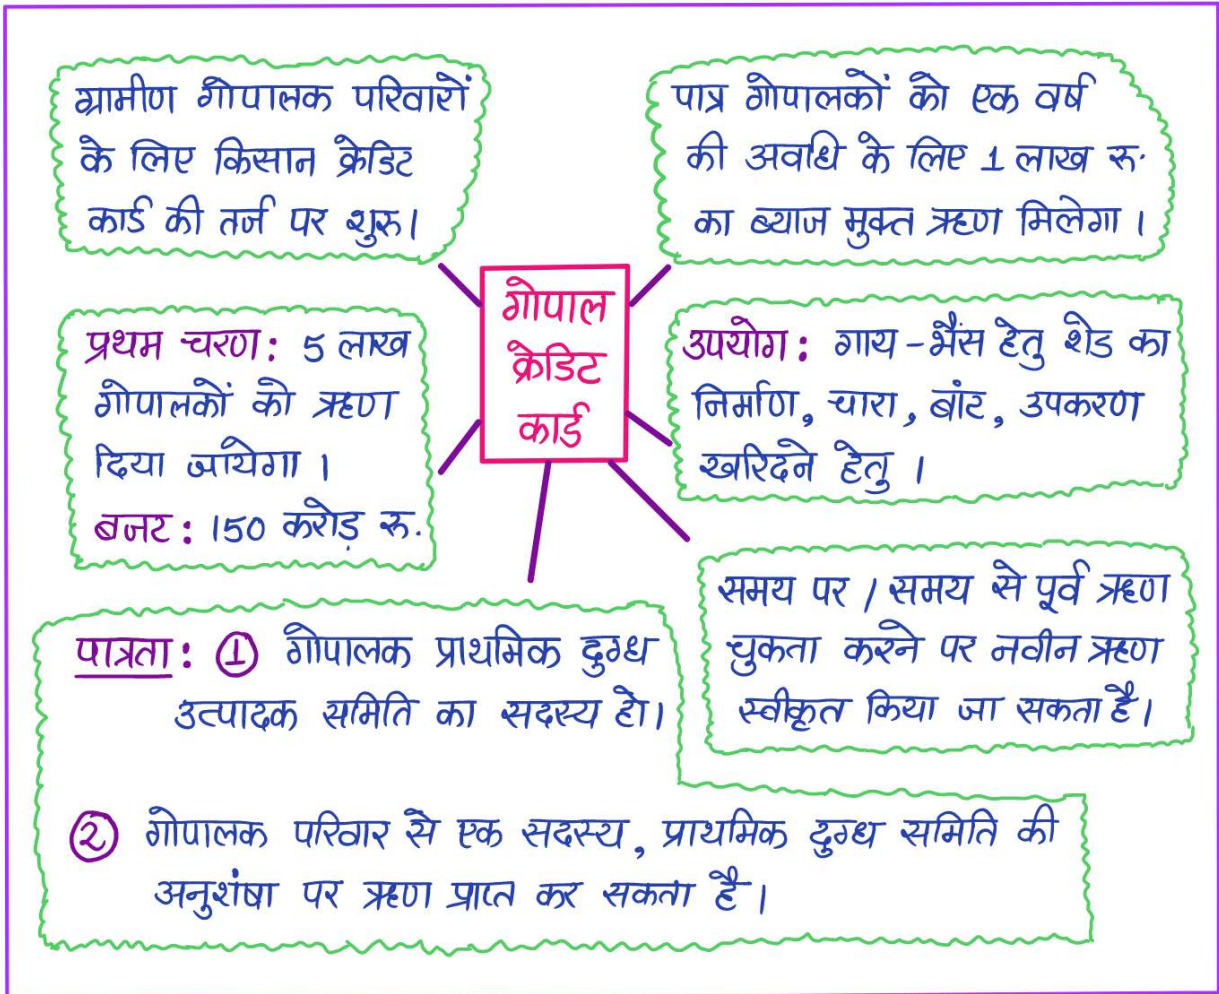 ग्रामीण गोपालक परिवारों
के लिए किसान क्रेडिट
कार्ड की तर्ज पर शुरू।
पात्र गोपालकों को एक वर्ष
की अवधि के लिए 1 लाख रु.
का ब्याज मुक्त ऋण मिलेगा।
गोपाल
क्रेडिट
कार्ड
प्रथम चरण: 5 लाख
गोपालकों को ऋण
दिया जायेगा।
बजट: 150 करोड़ रु.
उपयोग: गाय-भैंस हेतु शेड का
निर्माण, चारा, बांट, उपकरण
खरिदने हेतु।
समय पर / समय से पूर्व ऋण
चुकता करने पर नवीन ऋण
स्वीकृत किया जा सकता है।
पात्रता: ① गोपालक प्राथमिक दुग्ध
उत्पादक समिति का सदस्य हो।
② गोपालक परिवार से एक सदस्य, प्राथमिक दुग्ध समिति की
अनुशंषा पर ऋण प्राप्त कर सकता है।